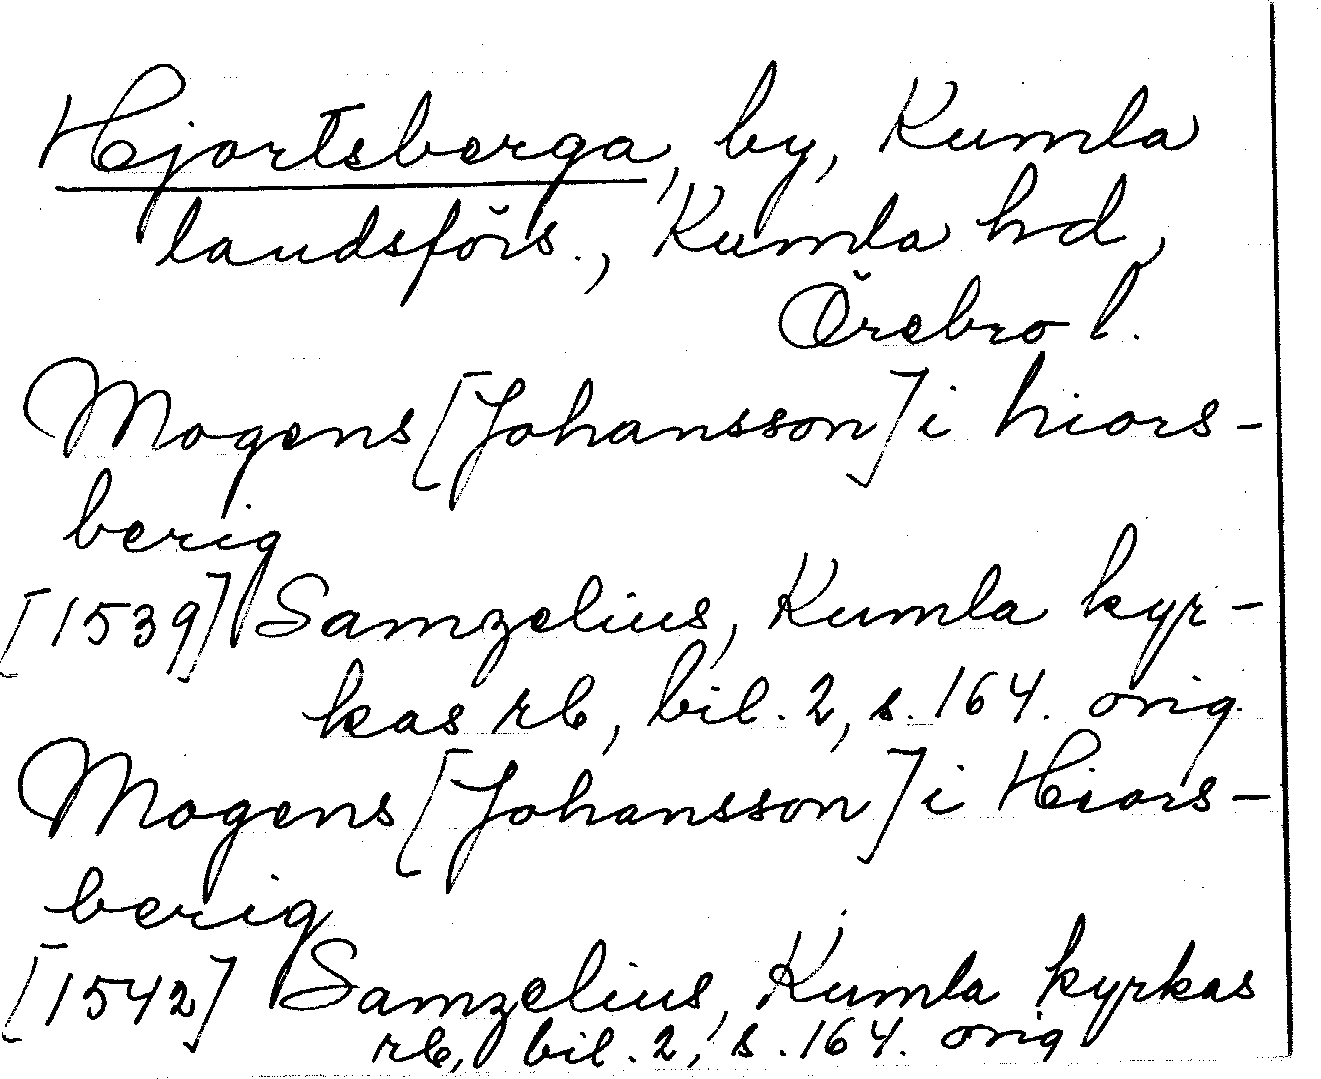 Hjortsberga, by, Kumla
landsförs., Kumla hd,
Örebro l.
Mogens [Johansson] i hiors-
berig
[1539] Samzelius, Kumla kyr-
kas rb, bil. 2, s. 164. orig.
Mogens [Johansson] i Hiors-
berig
[1542] Samzelius, Kumla kyrkas
rb, bil. 2, s. 164. orig